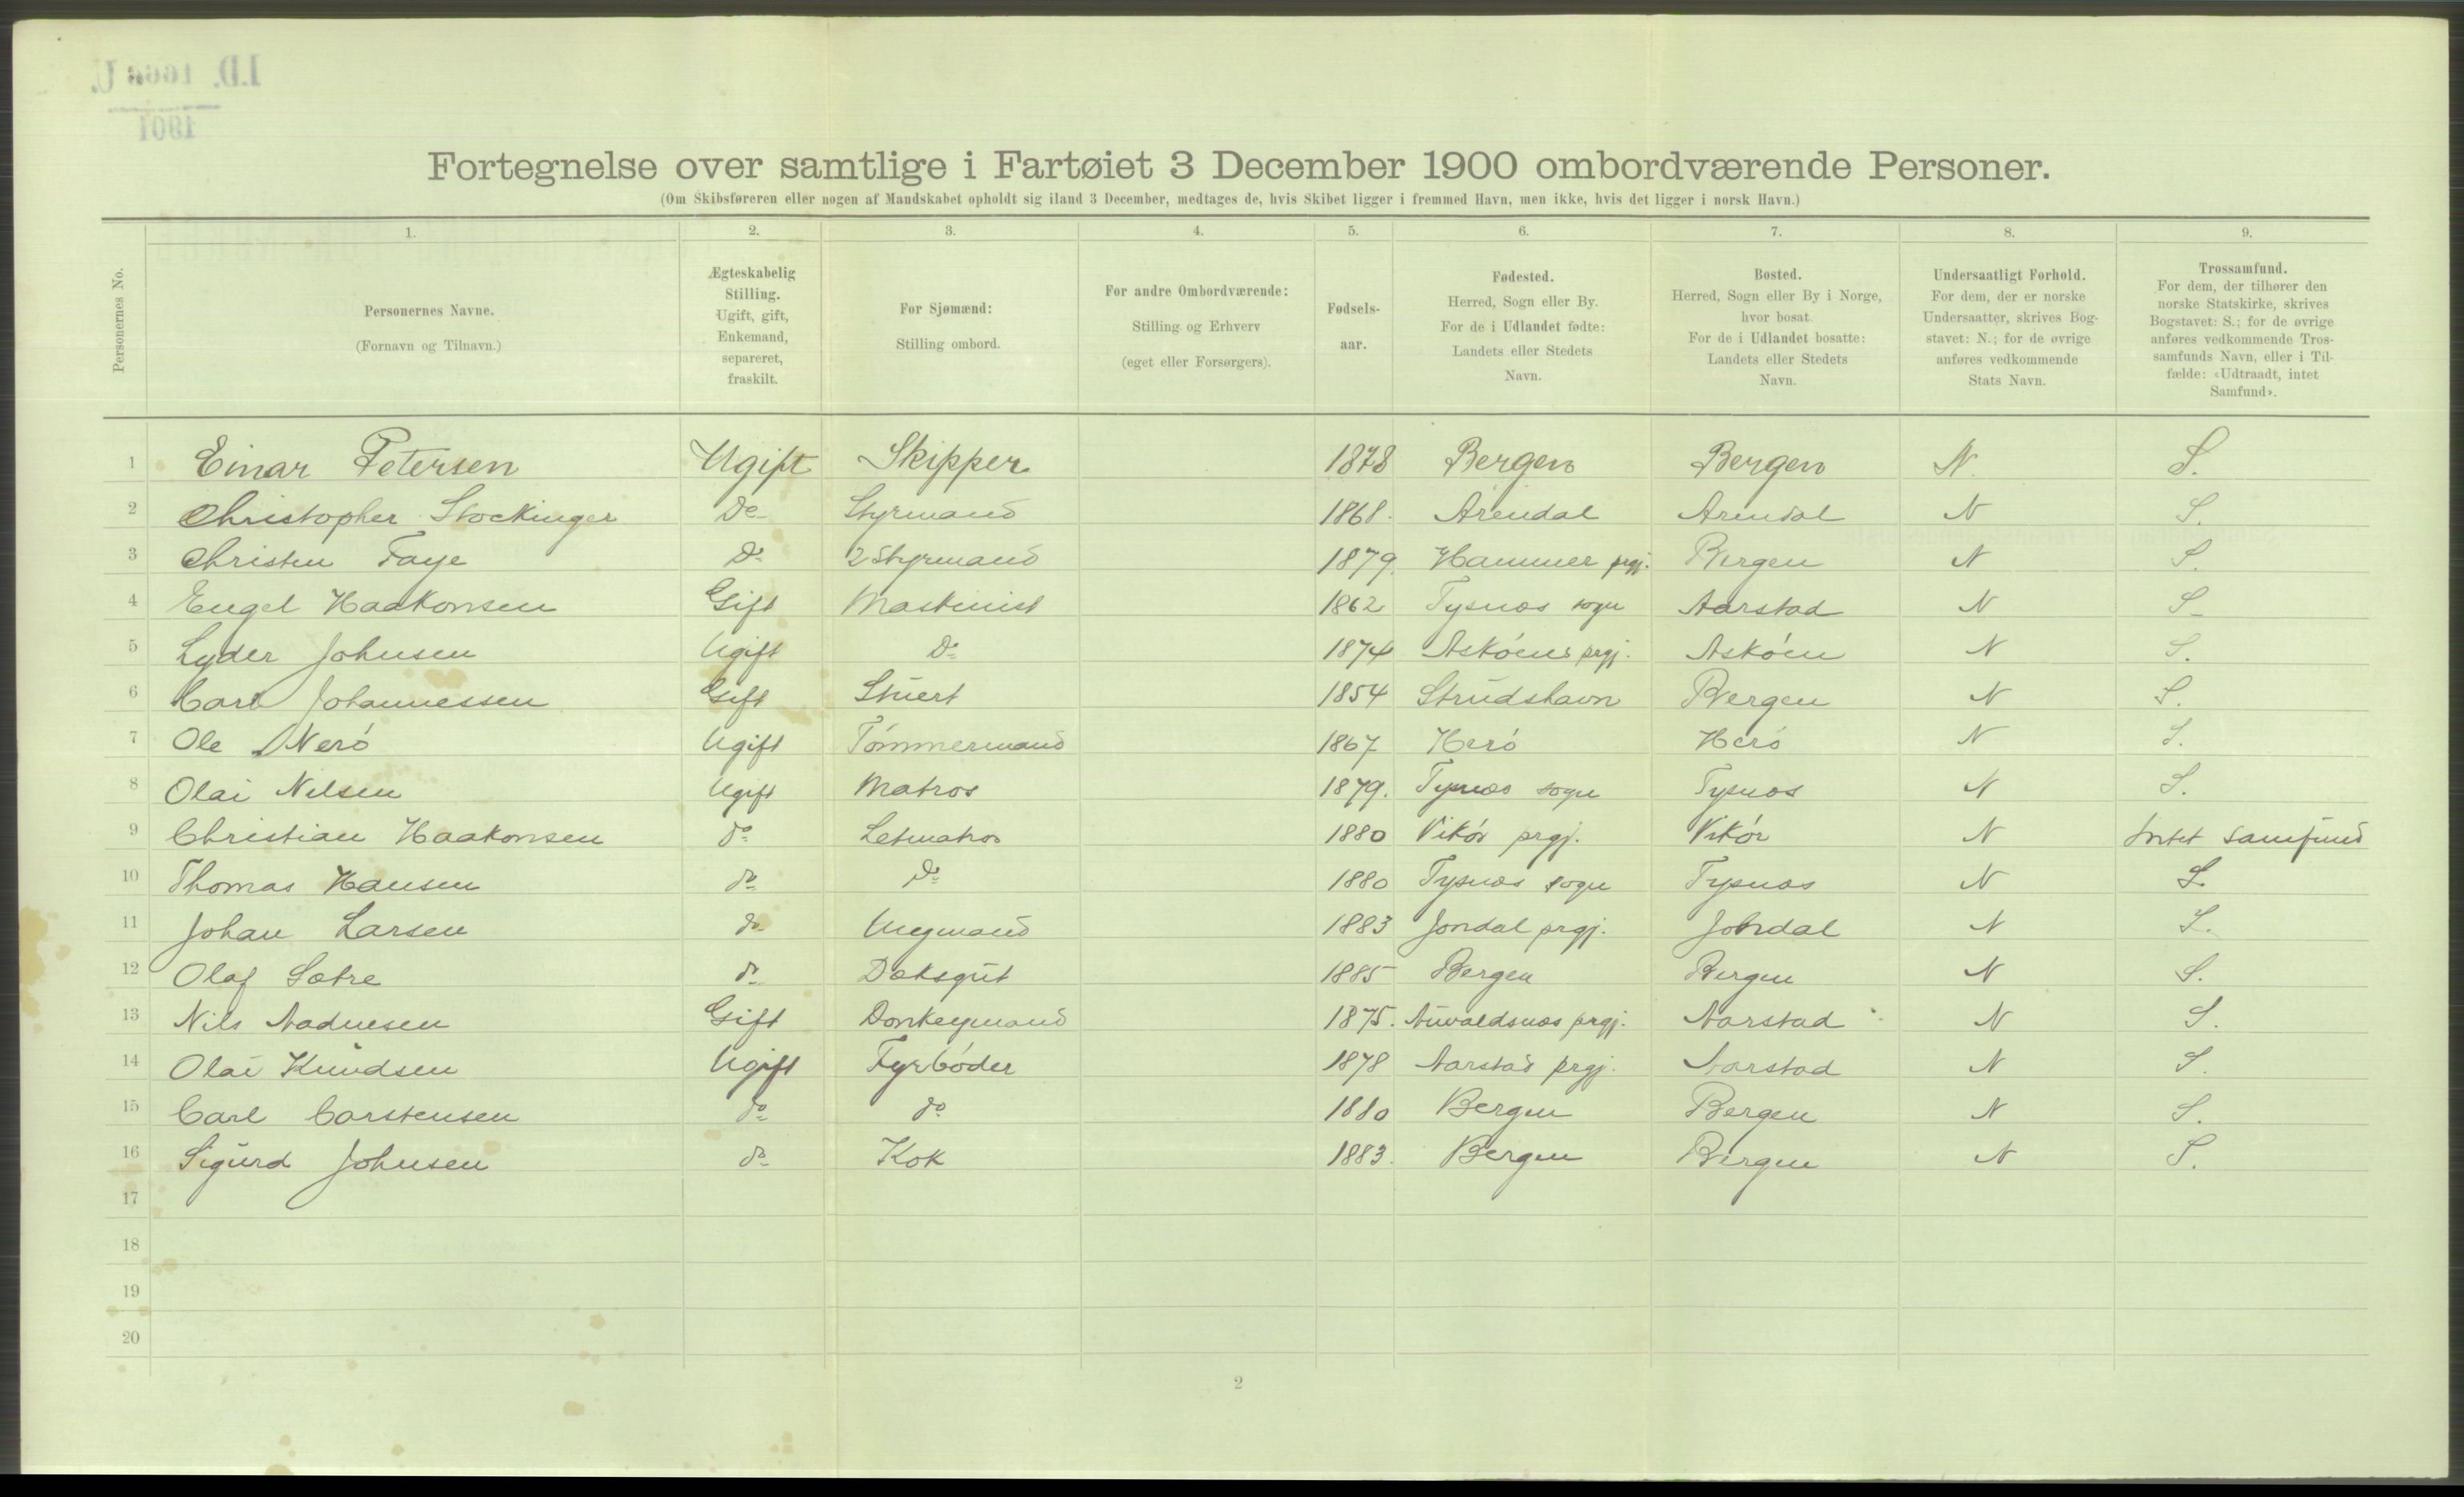 I.D. 1666 U.
1901
Fortegnelse over samtlige i Fartøiet 3 December 1900 ombordværende Personer.
(Om Skibsføreren eller nogen af Mandskabet opholdt sig iland 3 December, medtages de, hvis Skibet ligger i fremmed Havn, men ikke, hvis det ligger i norsk Havn.)
Personernes No.
1. 2. 3. 4. 5. 6. 7. 8. 9.
Personernes Navne.
(Fornavn og Tilnavn.)
Ægteskabelig
Stilling.
Ugift, gift,
Enkemand,
separeret,
fraskilt.
For Sjømænd:
Stilling ombord.
For andre Ombordværende:
Stilling og Erhverv
(eget eller Forsørgers).
Fødsels-
aar.
Fødested.
Herred, Sogn eller By.
For de i Udlandet fødte:
Landets eller Stedets
Navn.
Bosted.
Herred, Sogn eller By i Norge,
hvor bosat.
For de i Udlandet bosatte:
Landets eller Stedets
Navn.
Undersaatligt Forhold.
For dem, der er norske
Undersaatter, skrives Bog-
stavet: N.; for de øvrige
anføres vedkommende
Stats Navn.
Trossamfund.
For dem, der tilhører den
norske Statskirke, skrives
Bogstavet: S.; for de øvrige
anføres vedkommende Tros-
samfunds Navn, eller i Til-
fælde: «Udtraadt, intet
Samfund».
1 Einar Petersen Ugift Skipper 1878 Bergen Bergen N. S.
2 Christopher Stockinger Do Styrmand 1868. Arendal Arendal N S.
3 Christen Faye Do 2 Styrmand 1879. Hammer prgj. Bergen N S.
4 Engel Haakonsen Gift Maskinist 1862 Tysnæs sogn Aarstad N S
5 Lyder Johnsen Ugift Do 1874 Askøens prgj. Askøen N S.
6 Carl Johannessen Gift Stuert 1854 Strudshavn Bergen N S.
7 Ole Nerø Ugift Tømmermand 1867 Herø Herø N S.
8 Olai Nilsen Ugift Matros 1879. Tysnæs sogn Tysnæs N S.
9 Christian Haakonsen do Letmatros 1880 Vikør prgj. Vikør N Intet samfund
10 Thomas Hansen do Do 1880 Tysnæs sogn Tysnæs N S.
11 Johan Larsen do Ungmand 1883 Jondal prgj. Jondal N S.
12 Olaf Sætre do Dæksgut 1885 Bergen Bergen N S.
13 Nils Aadnesen Gift Donkeymand 1875. Auvaldsnæs prgj. Aarstad N S.
14 Olai Knudsen Ugift Fyrbøder 1878 Aarstad prgj. Aarstad N S.
15 Carl Carstensen do do 1880 Bergen Bergen N S.
16 Sigurd Johnsen do Kok 1883. Bergen Bergen N S.
17
18
19
20
2